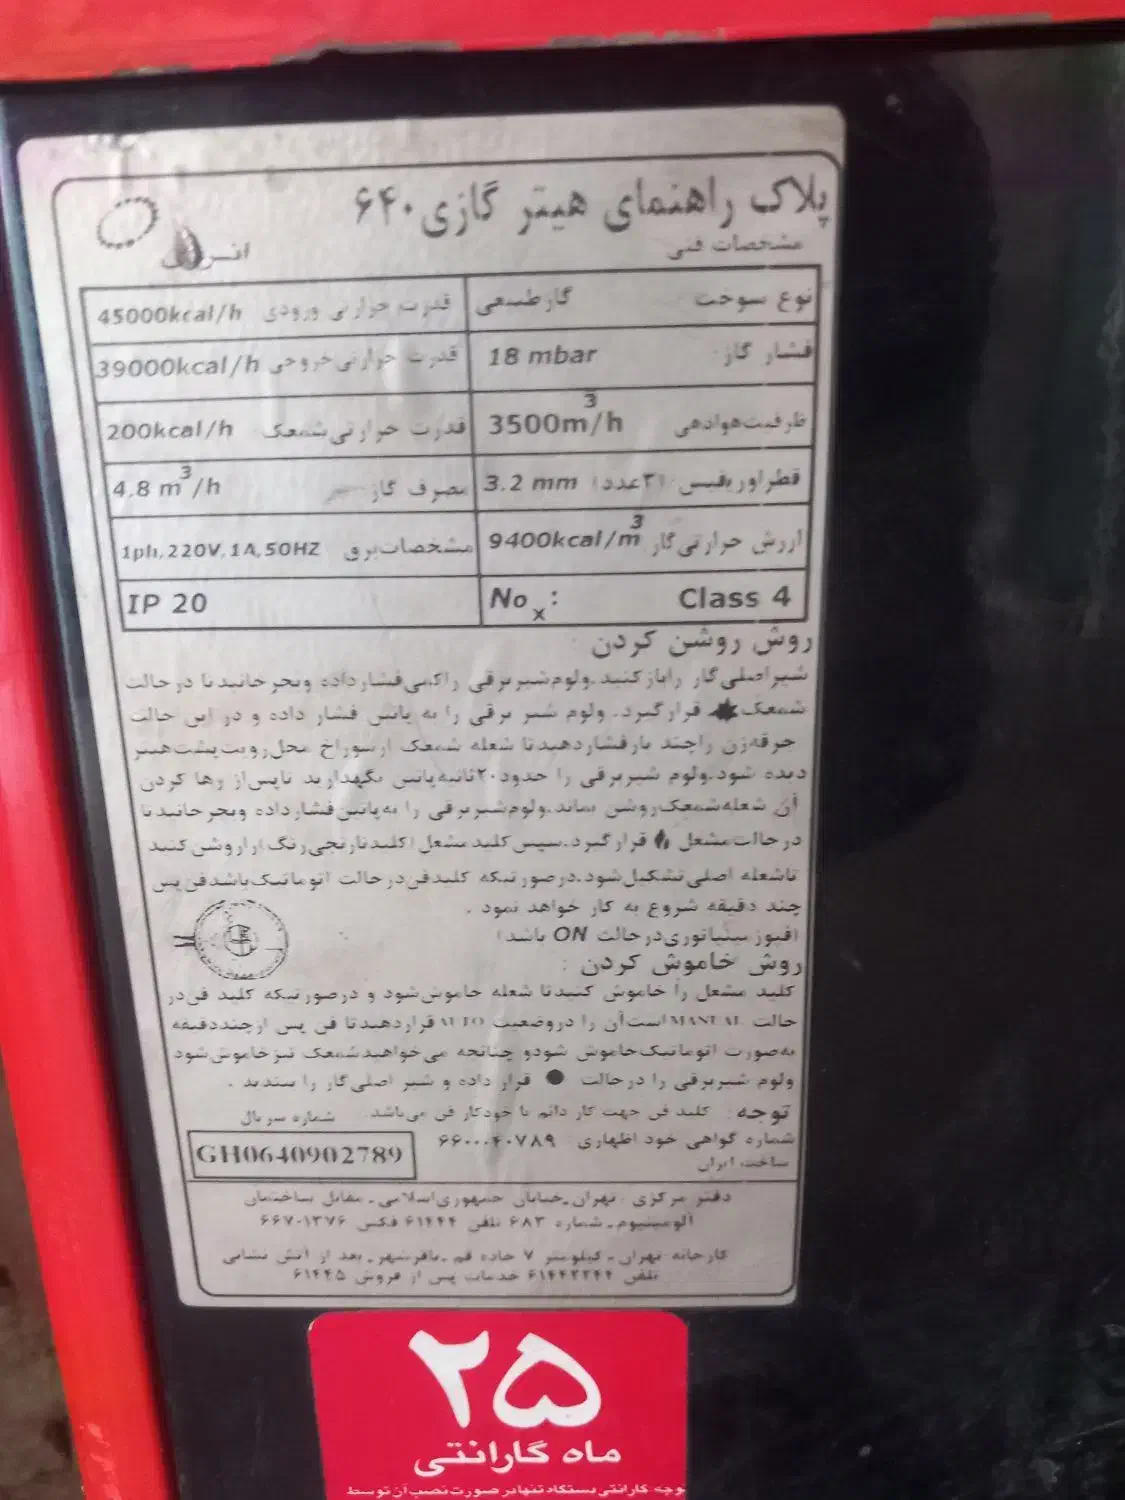 پلاک راهنمای هیتر گازی ۶۴۰
مشخصات فنی
انرژی
نوع سوخت گازطبیعی قدرت حرارتی ورودی 45000kcal/h
فشار گاز 18 mbar قدرت حرارتی خروجی 39000kcal/h
ظرفیت هوادهی 3500m³/h قدرت حرارتی شمعک 200kcal/h
قطر اوریفیس (۳عدد) 3.2 mm مصرف گاز 4.8 m³/h
ارزش حرارتی گاز 9400kcal/m³ مشخصات برق 1ph,220V,1A,50HZ
Noₓ: Class 4 IP 20
روش روشن کردن :
شیر اصلی گاز را باز کنید. ولوم شیر برقی را کمی فشار داده و بچرخانید تا در حالت
شمعک قرار گیرد. ولوم شیر برقی را به پائین فشار داده و در این حالت
جرقه زن را چند بار فشار دهید تا شعله شمعک از سوراخ محل رویت پشت هیتر
دیده شود. ولوم شیر برقی را حدود ۲۰ ثانیه پائین نگهدارید تا پس از رها کردن
آن شعله شمعک روشن بماند. ولوم شیر برقی را به پائین فشار داده و بچرخانید تا
در حالت مشعل قرار گیرد. سپس کلید مشعل (کلید نارنجی رنگ) را روشن کنید
تا شعله اصلی تشکیل شود. در صورتیکه کلید فن در حالت اتوماتیک باشد فن پس
چند دقیقه شروع به کار خواهد نمود .
(فیوز مینیاتوری در حالت ON باشد)
روش خاموش کردن :
کلید مشعل را خاموش کنید تا شعله خاموش شود و در صورتیکه کلید فن در
حالت MANUAL است آن را در وضعیت AUTO قرار دهید تا فن پس از چند دقیقه
به صورت اتوماتیک خاموش شود و چنانچه می خواهید شمعک نیز خاموش شود
ولوم شیر برقی را در حالت ● قرار داده و شیر اصلی گاز را ببندید .
توجه : کلید فن جهت کار دائم یا خودکار فن می باشد.
شماره سریال
شماره گواهی خود اظهاری
GH0640902789
ساخت ایران
دفتر مرکزی : تهران ـ خیابان جمهوری اسلامی ـ مقابل ساختمان
آلومینیوم ـ شماره ۶۸۳ تلفن ۶۱۴۴۴ فکس ۶۶۷۰۱۳۷۶
کارخانه تهران ـ کیلومتر ۷ جاده قم ـ باقرشهر ـ بعد از آتش نشانی
تلفن خدمات پس از فروش ۶۱۴۴۵
۲۵
ماه گارانتی
توجه گارانتی دستگاه تنها در صورت نصب آن توسط